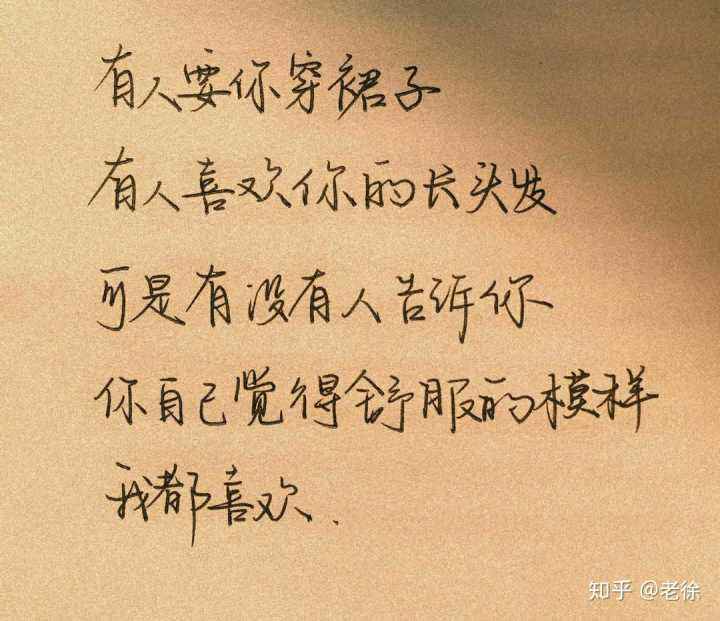 有人要你穿裙子
有人喜欢你的长头发
可是有没有人告诉你
你自己觉得舒服的模样
我都喜欢.
知乎 @老徐